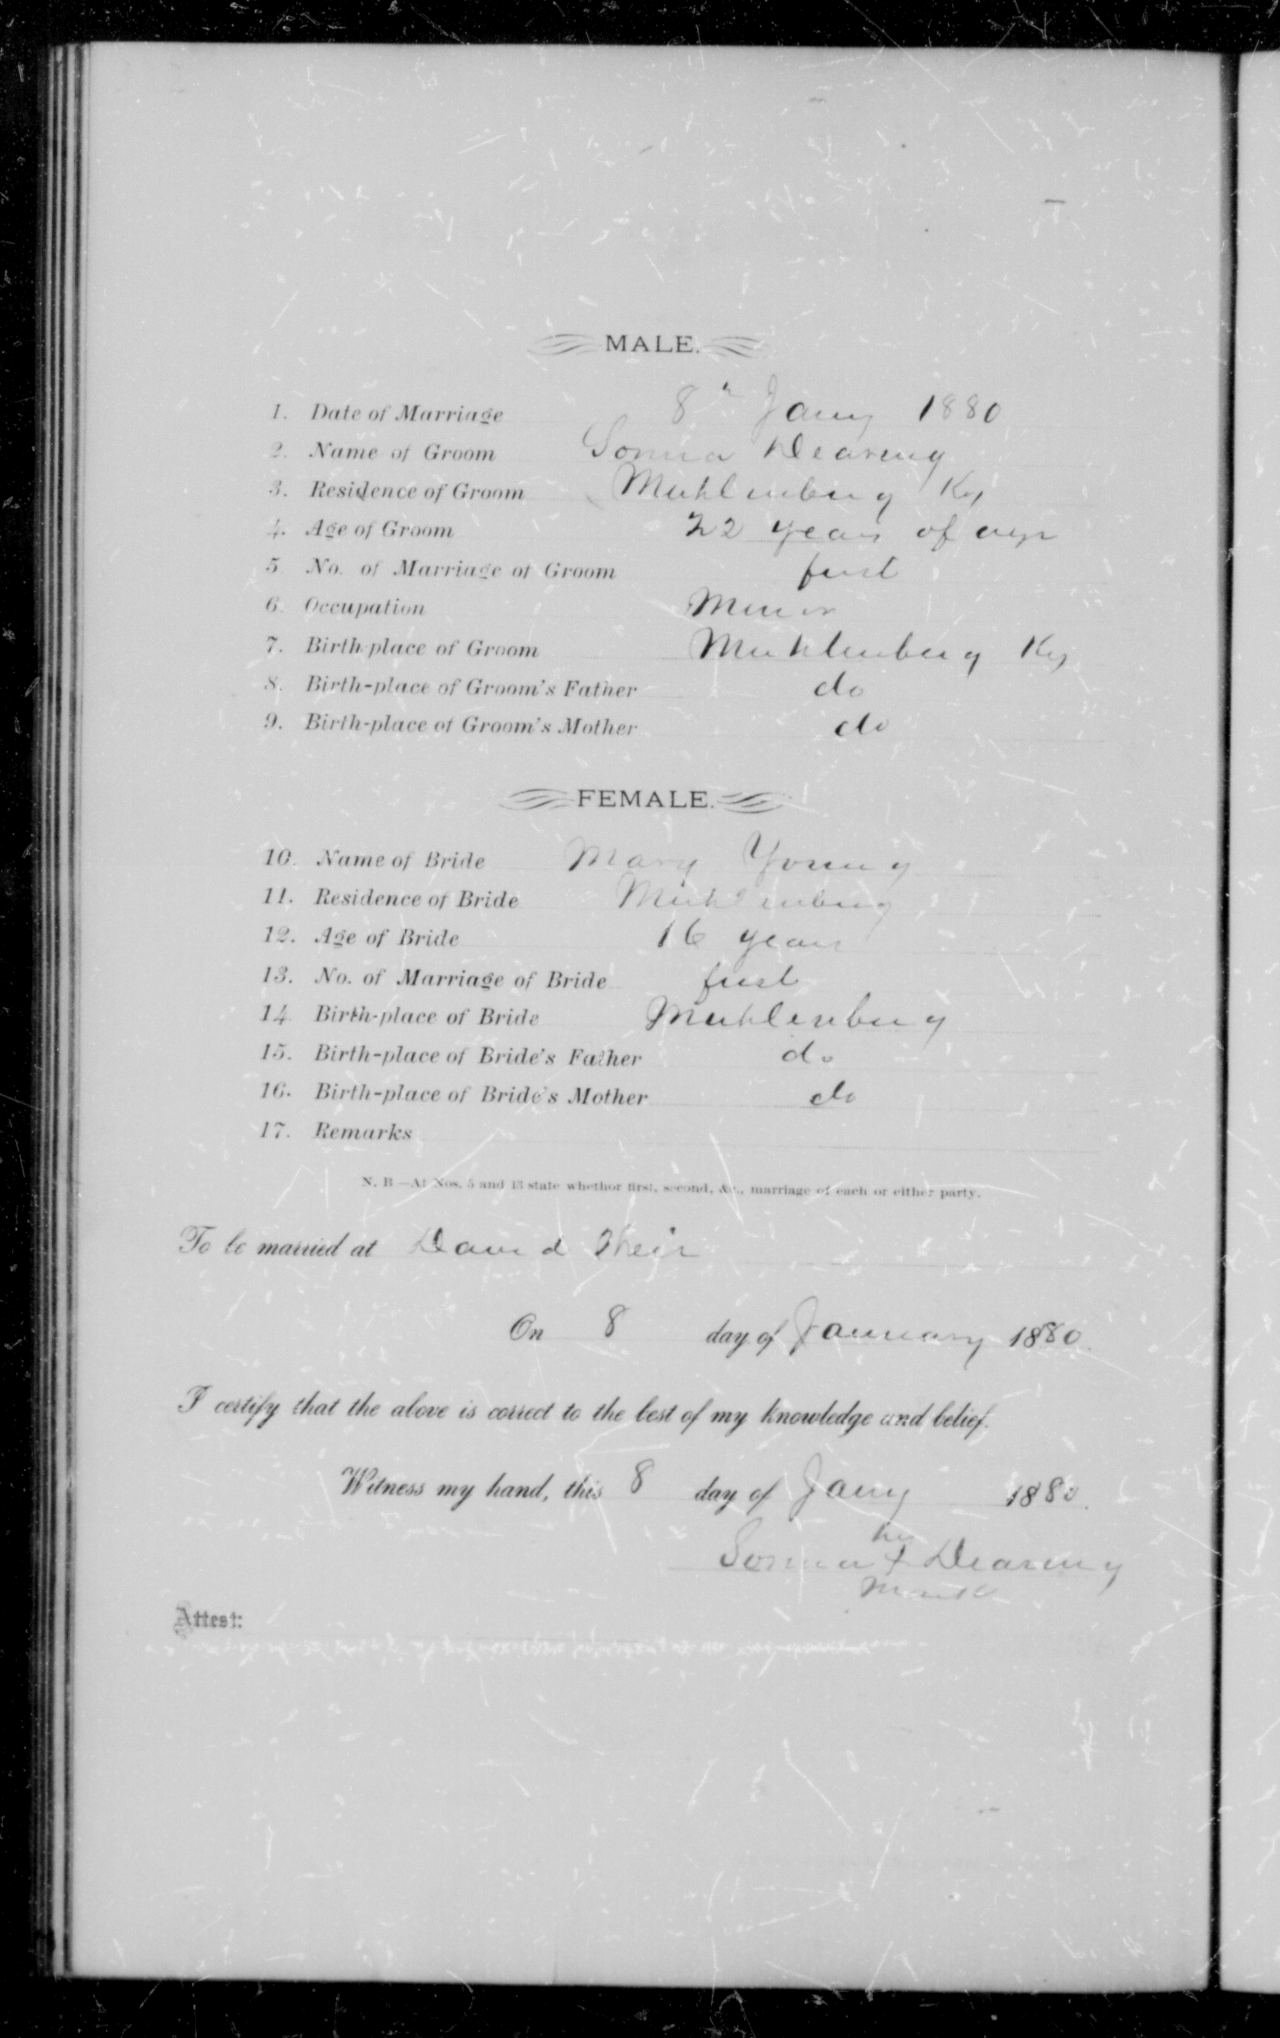 MALE.
1. Date of Marriage 8th Jany 1880
2. Name of Groom Dearing
3. Residence of Groom Muhlenburg Ky
4. Age of Groom 22 years of age
5. No. of Marriage of Groom first
6. Occupation Miner
7. Birth-place of Groom Muhlenburg Ky
8. Birth-place of Groom's Father do
9. Birth-place of Groom's Mother do
FEMALE.
10. Name of Bride Mary Young
11. Residence of Bride Muhlenburg
12. Age of Bride 16 years
13. No. of Marriage of Bride first
14. Birth-place of Bride Muhlenburg
15. Birth-place of Bride's Father do
16. Birth-place of Bride's Mother do
17. Remarks
N. B.—At Nos. 5 and 13 state whether first, second, &c., marriage of each or either party.
To be married at David
On 8 day of January 1880.
I certify that the above is correct to the best of my knowledge and belief.
Witness my hand, this 8 day of Jany 1880.
his
x Dearing
mark
Attest: